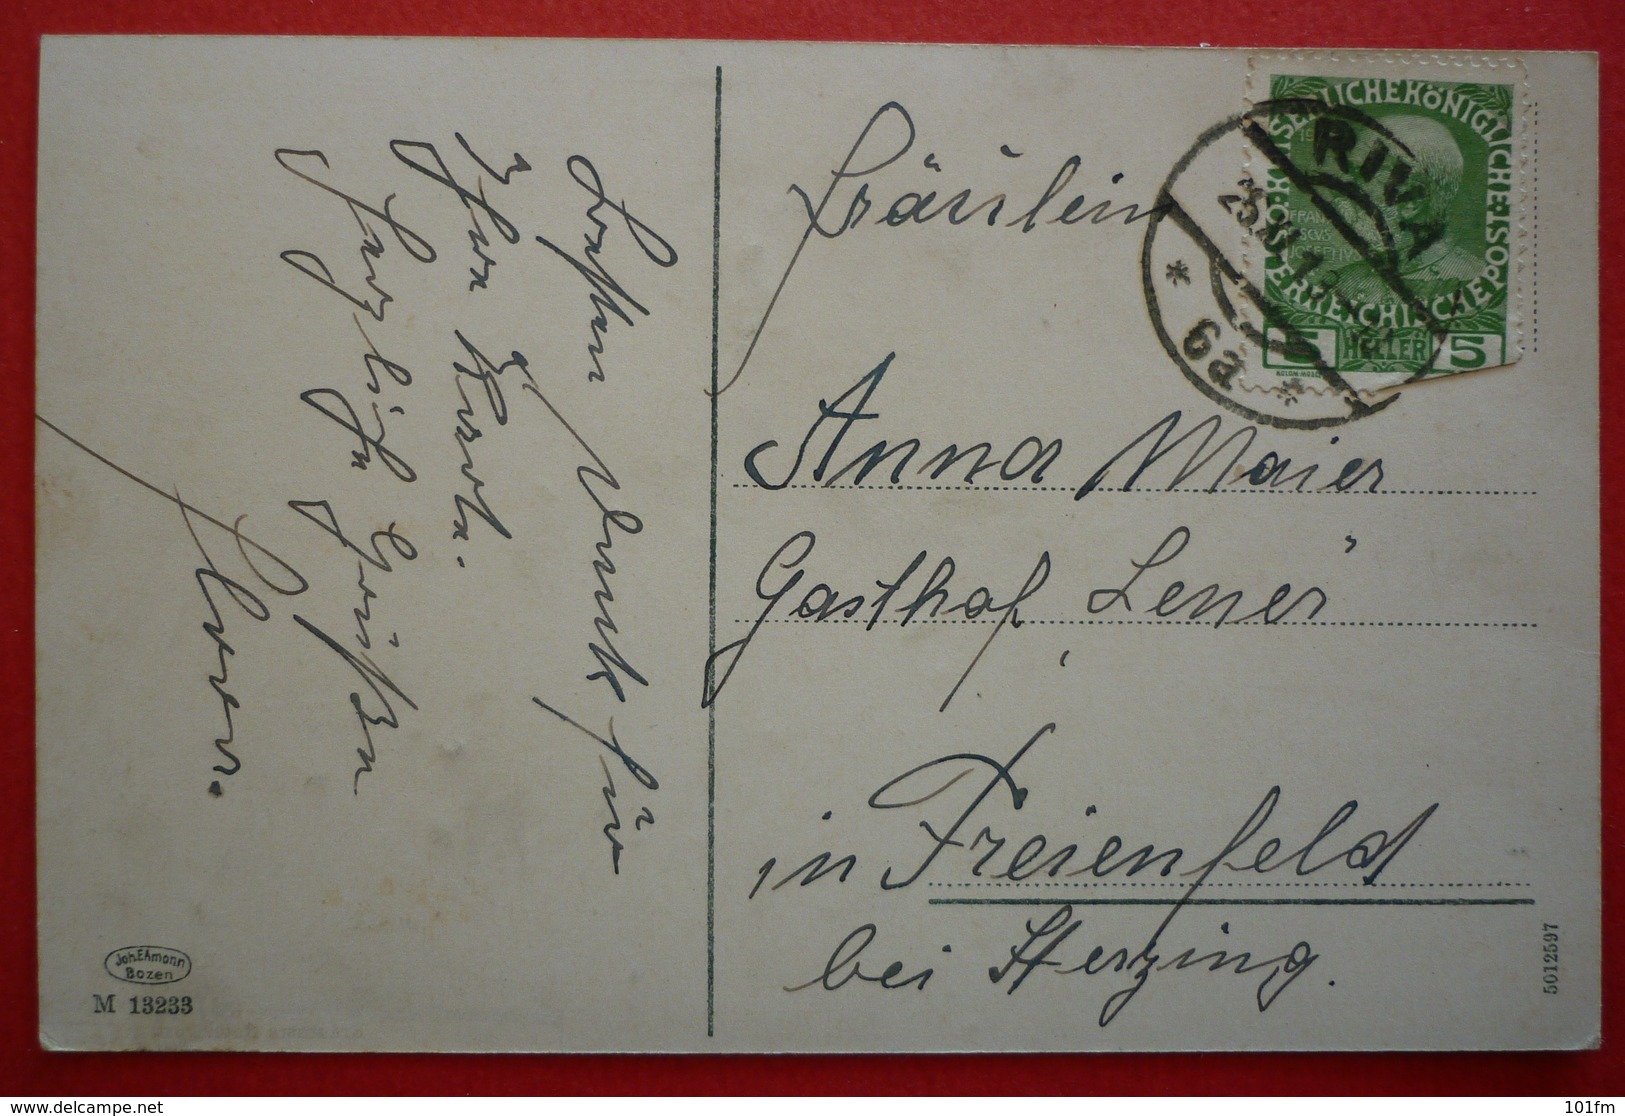 Besten Dank für
Ihre Karte.
Herzliche Grüßen
Fräulein
Anna Maier
Gasthof „Lener"
in Freienfeld
bei Sterzing.
RIVA
6a
K.K. OESTERREICHISCHE POST
KAISERLICHE KÖNIGLICHE
FRANCISCUS
JOSEPHUS
5 HELLER 5
Joh.F.Amonn
Bozen
M 13233
5012597
101fm